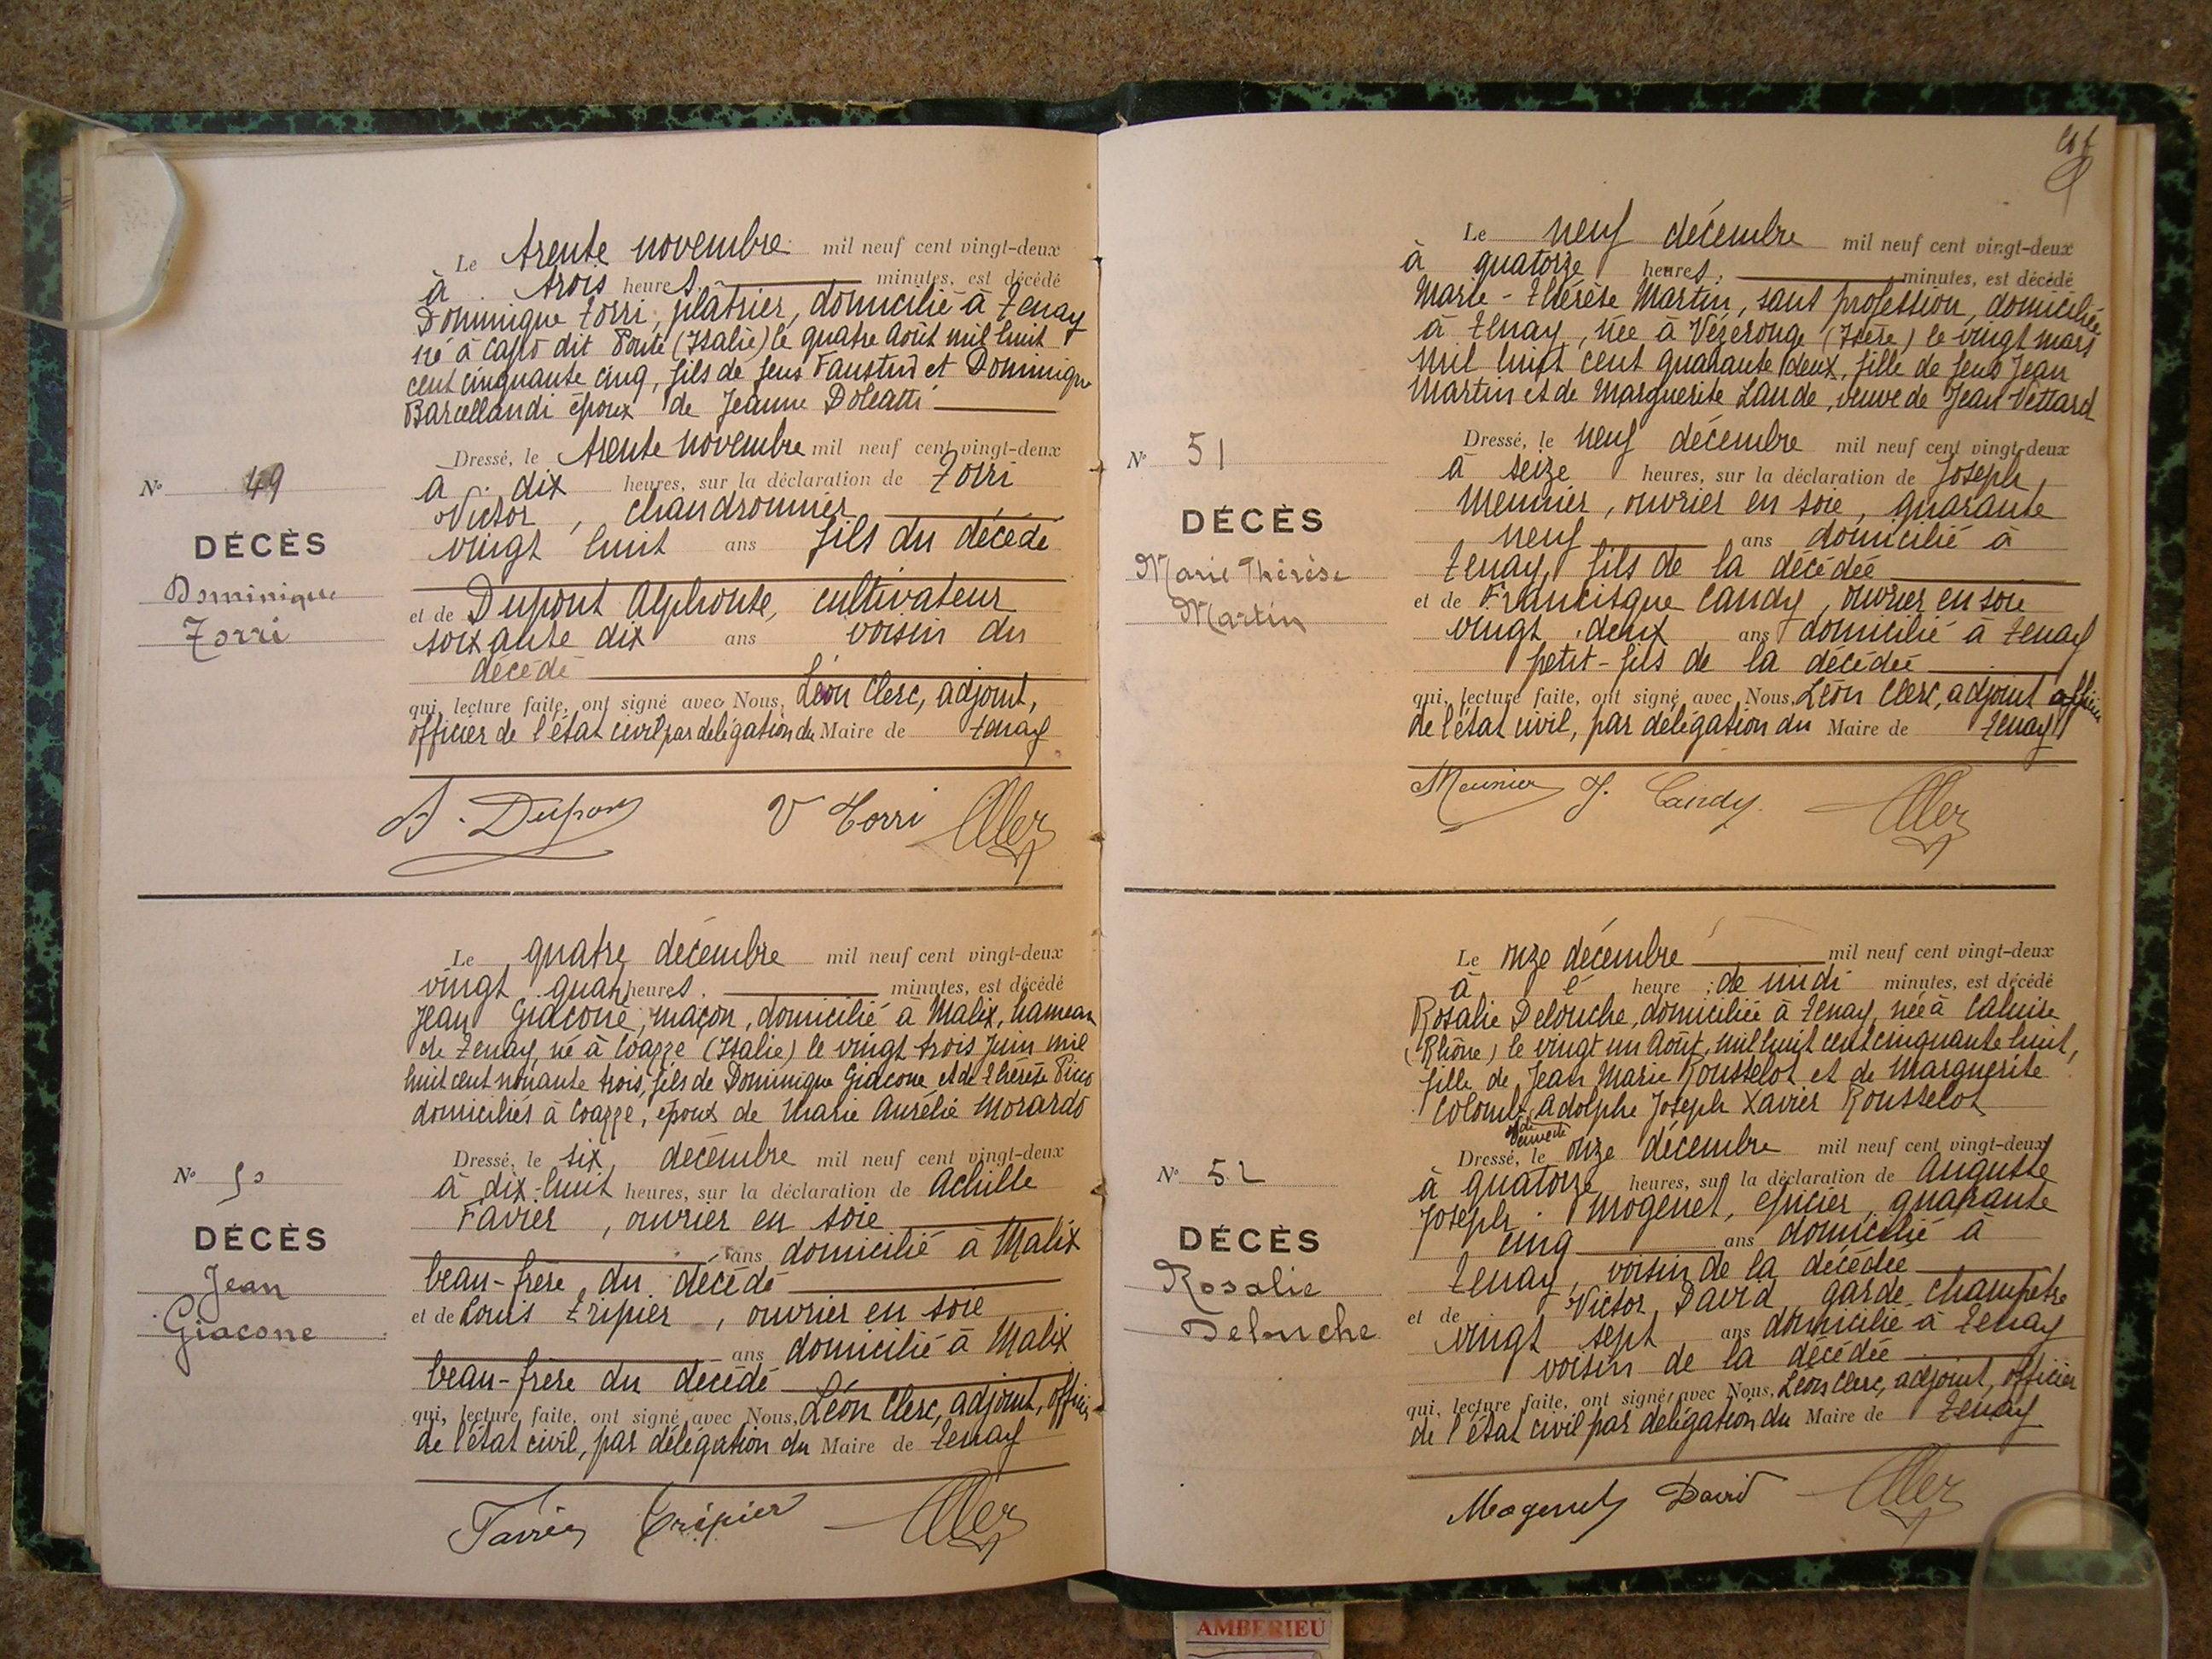 Le trente novembre mil neuf cent vingt-deux
à trois heures. minutes, est décédé
Dominique Torri, plâtrier, domicilié à Tenay
né à dit Ponte (Italie) le quatre Août mil huit
cent cinquante cinq, fils de feus et Dominique
Barcellandi époux de Jeanne Doleatti
Dressé, le trente novembre mil neuf cent vingt-deux
à dix heures, sur la déclaration de Torri
Victor, chaudronnier
vingt huit ans fils du décédé
et de Dupont Alphonse, cultivateur
soixante dix ans voisin du
décédé
qui, lecture faite, ont signé avec Nous, Léon Clerc, adjoint,
officier de l'état civil par délégation du Maire de Tenay
No 49
DÉCÈS
Dominique
Torri
A. Dupont V Torri
Le quatre décembre mil neuf cent vingt-deux
vingt quatre heures. minutes, est décédé
Jean Giacone, maçon, domicilié à Malix, hameau
de Tenay, né à Coazze (Italie) le vingt trois Juin mil
huit cent nonante trois, fils de Dominique Giacone et de Thérèse
domiciliés à Coazze, époux de Marie Aurélie Morardo
Dressé, le six décembre mil neuf cent vingt-deux
à dix-huit heures, sur la déclaration de Achille
Favier, ouvrier en soie
ans domicilié à Malix
beau-frère du décédé
et de Louis Tripier, ouvrier en soie
ans domicilié à Malix
beau-frère du décédé
qui, lecture faite, ont signé avec Nous, Léon Clerc, adjoint, officier
de l'état civil, par délégation du Maire de Tenay
No 50
DÉCÈS
Jean
Giacone
Favier Tripier
Le neuf décembre mil neuf cent vingt-deux
à quatorze heures. minutes, est décédé
Marie-Thérèse Martin, sans profession, domiciliée
à Tenay, née à Vézeronge (Isère) le vingt mars
mil huit cent quarante deux, fille de feus Jean
Martin et de Marguerite Lande, veuve de Jean Vettard
Dressé, le neuf décembre mil neuf cent vingt-deux
à seize heures, sur la déclaration de Joseph
Meunier, ouvrier en soie, quarante
neuf ans domicilié à
Tenay, fils de la décédée
et de Francisque Candy, ouvrier en soie
vingt deux ans domicilié à Tenay
petit-fils de la décédée
qui, lecture faite, ont signé avec Nous, Léon Clerc, adjoint officier
de l'état civil, par délégation du Maire de Tenay
No 51
DÉCÈS
Marie Thérèse
Martin
Meunier F. Candy.
Le onze décembre mil neuf cent vingt-deux
à heure de midi minutes, est décédé
Rosalie Delouche, domiciliée à Tenay, née à Caluire
(Rhône) le vingt un Août, mil huit cent cinquante huit,
fille de Jean Marie Rousselot et de Marguerite
Colomb, Adolphe Joseph Xavier Rousselot
et de
veuve de
Dressé, le onze décembre mil neuf cent vingt-deux
à quatorze heures, sur la déclaration de Auguste
Joseph Mogenet, épicier, quarante
cinq ans domicilié à
Tenay, voisin de la décédée
et de Victor David garde champêtre
vingt sept ans domicilié à Tenay
voisin de la décédée
qui, lecture faite, ont signé avec Nous, Léon Clerc, adjoint, officier
de l'état civil par délégation du Maire de Tenay
No 52
DÉCÈS
Rosalie
Delouche
Mogenet David
AMBERIEU